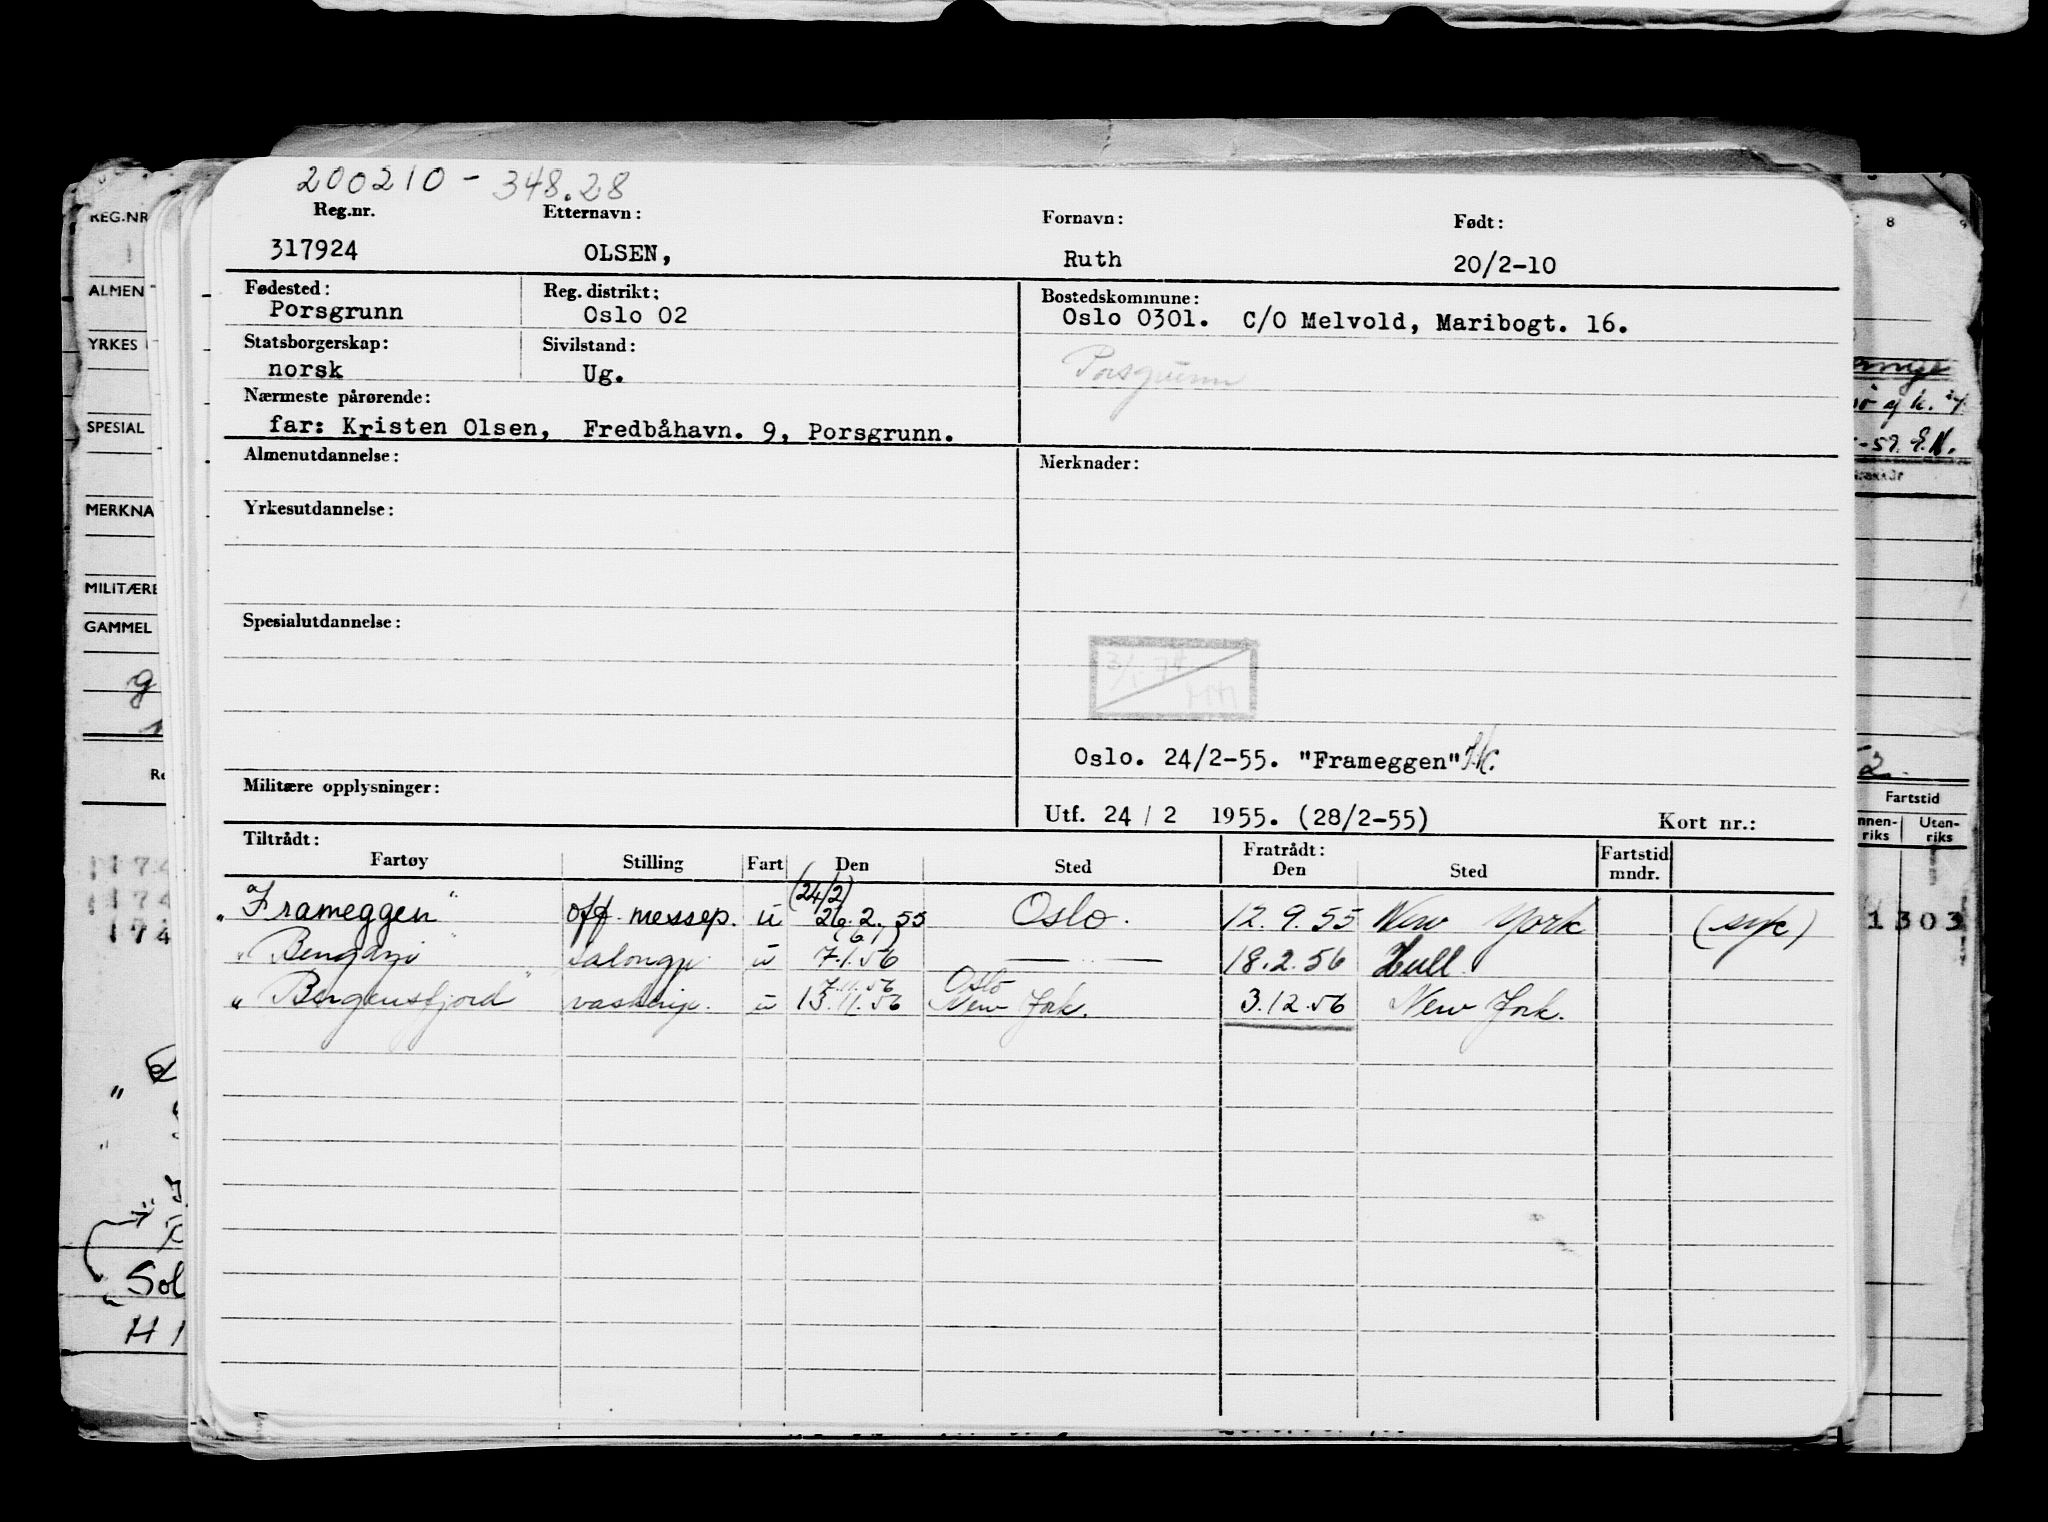 200210 - 348.28
Reg.nr. Etternavn: Fornavn: Født:
317924 OLSEN, Ruth 20/2-10
Fødested: Reg. distrikt: Bostedskommune:
Porsgrunn Oslo 02 Oslo 0301. C/O Melvold, Maribogt. 16.
Statsborgerskap: Sivilstand: Porsgrunn
norsk Ug.
Nærmeste pårørende:
far: Kristen Olsen, Fredbåhavn. 9, Porsgrunn.
Almenutdannelse: Merknader:
Yrkesutdannelse:
Spesialutdannelse:
Oslo. 24/2-55. "Frameggen"
Militære opplysninger:
Utf. 24 / 2 1955. (28/2-55) Kort nr.:
Tiltrådt: Fratrådt:
Fartøy Stilling Fart Den Sted Den Sted Fartstid mndr.
(24/2)
"Frameggen" off. messep. u 26.2.55 Oslo. 12.9.55 New York (syk)
(6/1)
"Bengazi" salongp. u 7.1.56 — 18.2.56 Hull.
7.11.56 Oslo
"Bergensfjord" vaskerip. u 13.11.56 New York. 3.12.56 New York.
REG.NR
ALMEN
YRKES
SPESIAL
MERKNA
MILITÆRE
GAMMEL
174
174
174
Sol
8
-59. E.N.
Fartstid
nnen-riks Uten-riks
1303